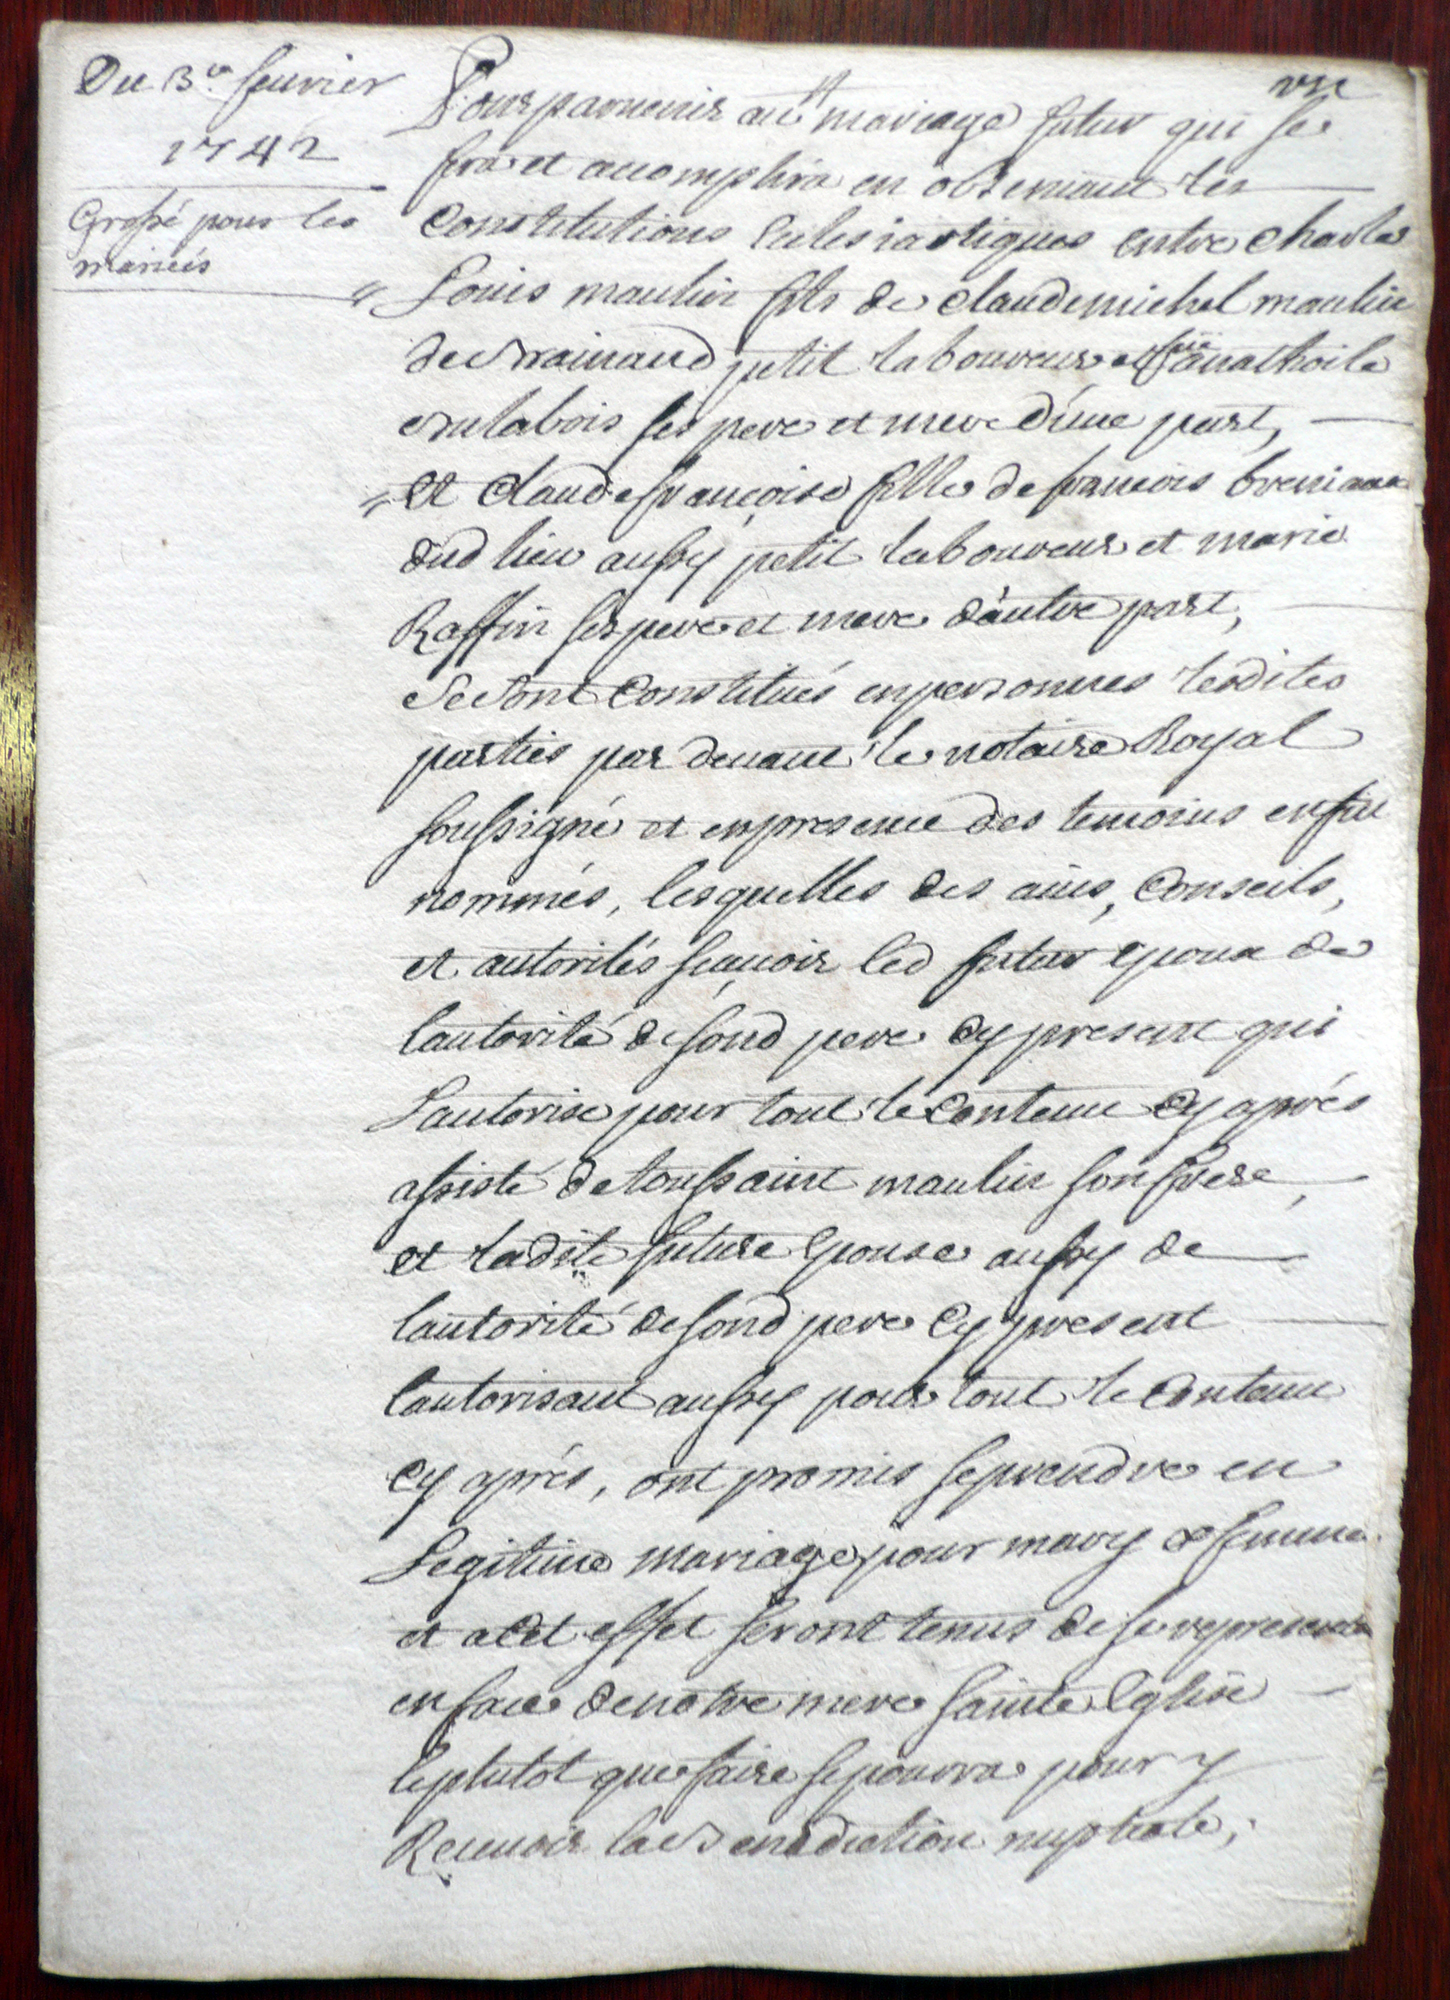 Du 3e. feurier
1742
Grossé pour les
mariés
vii
Pour paruenir au mariage futur qui se
fera et accomplira en obseruant les
Constitutions Ecclesiastiques entre Charles
Louis maulin fils de Claude michel maulin
de petit laboureur et anathoile
ses pere et mere d'une part,
et Claude françoise fille de francois breniaux
dud lieu aussy petit laboureur et marie
Raffin ses pere et mere d'autre part,
se sont Constitués en personnes lesdites
parties par deuant le notaire Royal
soussigné et en presence des temoins enfin
nommés, lesquelles des auis, Conseils,
et autorités sçauoir led futur epoux de
l'autorité de sond pere cy present qui
l'autorise pour tout le Contenu cy aprés
assisté de toussaint maulin son frere,
et ladite future Epouse aussy de
l'autorité de sond pere Cy present
l'autorisant aussy pour tout le Contenu
cy aprés, ont promis se prendre en
Legitime mariage pour mary & femme
et a cet effet seront tenus de se representer
en face de notre mere sainte Eglise
le plutot que faire se pourra pour y
Receuoir la Benediction nuptiale,